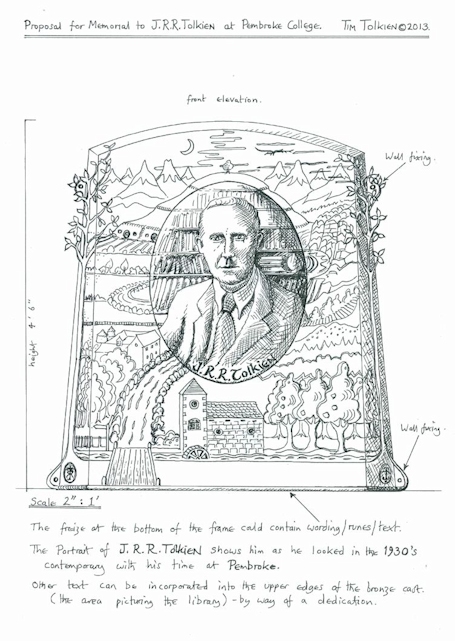 Proposal for Memorial to J.R.R.Tolkien at Pembroke College. Tim Tolkien©2013.
front elevation.
Wall fixing.
height 4' 6"
J.R.R.Tolkien
Wall fixing.
Scale 2" : 1'
The freize at the bottom of the frame could contain wording/runes/text.
The Portrait of J.R.R.Tolkien shows him as he looked in the 1930's
contemporary with his time at Pembroke.
Other text can be incorporated into the upper edges of the bronze cast.
(the area picturing the library) - by way of a dedication.